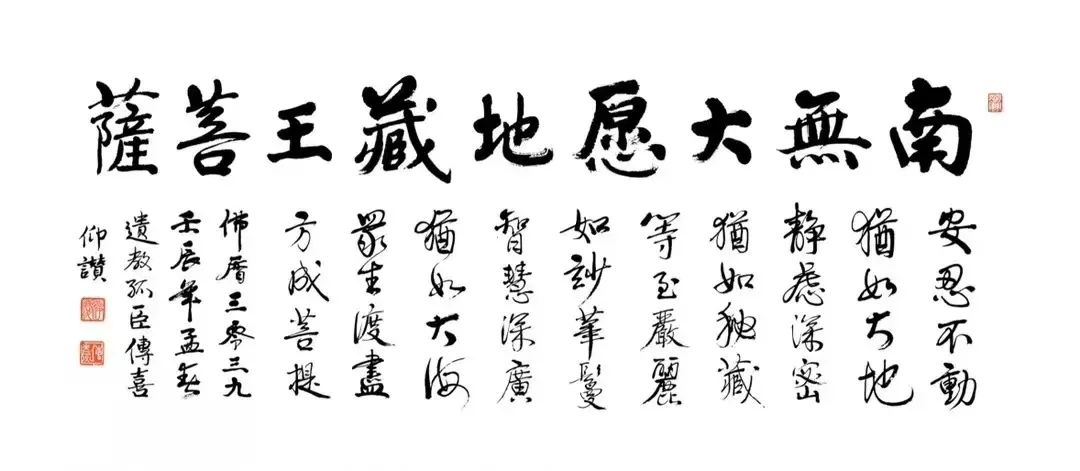 南無大愿地藏王菩薩
安忍不動
猶如大地
靜慮深密
猶如秘藏
等至嚴麗
如妙華鬘
智慧深廣
猶如大海
眾生渡盡
方成菩提
佛曆三零三九
壬辰年孟春
遺教孤臣傳喜
仰讚